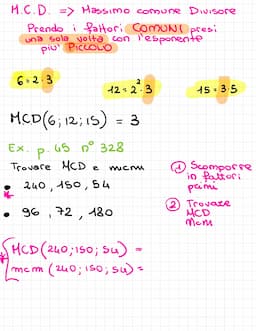 M.C.D. => Massimo comune Divisore
Prendo i fattori COMUNI presi
una sola volta con l'esponente
piu' PICCOLO
6=2·3
12=2²·3
15=3·5
MCD(6;12;15) = 3
Es. p. 45 n° 328
Trovare MCD e mcm
• 240, 150, 54
• 96, 72, 180
① Scomporre
in fattori
primi
② Trovare
MCD
mcm
MCD(240;150;54) =
mcm (240;150;54) =